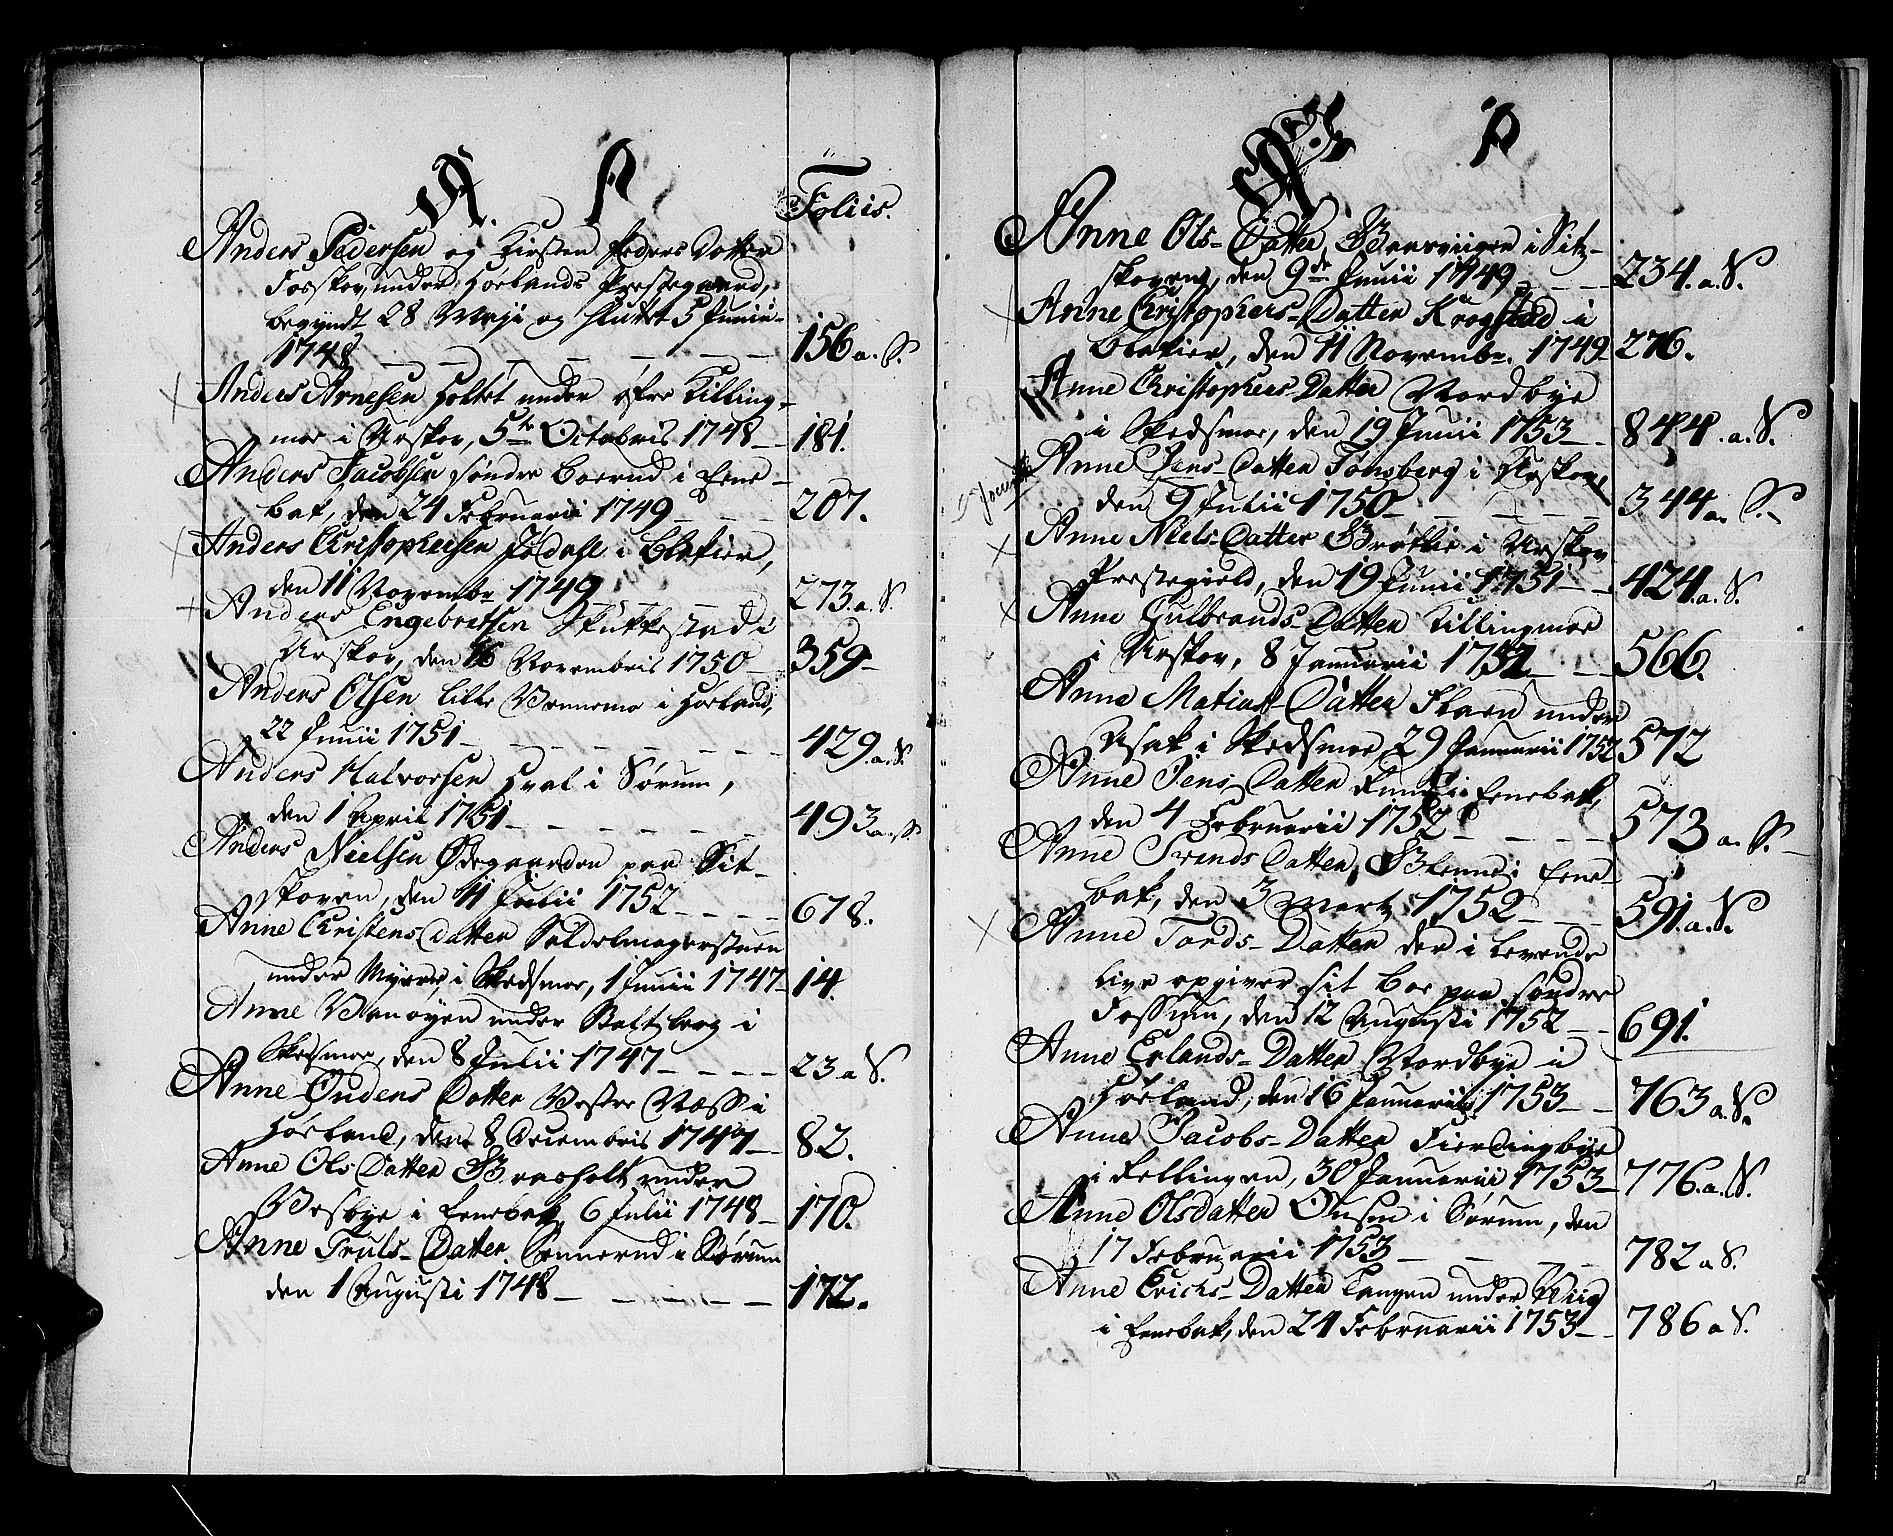 A. A
Foliis.
Anders Pedersen og Kirsten Peders Datter
Fosskov under Hørlands Prestegaard,
begyndt 28 Maji og sluttet 5 Junii
1748 — 156 a. S.
Anders Arnesen Holtet under øfre Killing-
moe i Urskov, 5te Octobris 1748 — 181.
Anders Jacobsen søndre Boerud i Ene-
bak, den 24 Februarii 1749 — 207.
Anders Christophersen Jødahl i Blakier,
den 11 Novembr 1749 — 273. a. S.
Anders Engebretsen Skukkestad i
Urskov, den 16 Novembris 1750 — 359
Anders Olsen lille Vennemo i Høeland,
22 Junii 1751 — 429. a. S.
Anders Halvorsen Hval i Sørum,
den 1 April 1751 — 493 a. S.
Anders Nielsen Ødegaarden paa Sit-
skoven, den 11 Julii 1752 — 678.
Anne Christens Datter Saldelmagerstuen
under Myrer i Skedsmoe, 1 Junii 1747 — 14.
Anne under Stalsberg i
Skedsmoe, den 8 Julii 1747 — 23 a S.
Anne Oudens Datter Vestre Næss i
Hørland, den 8 Decembris 1747 — 82.
Anne Ols Datter Braaholt under
Vesbye i Enebak 6 Julii 1748 — 170.
Anne Truls-Datter Sønnerud i Sørum
den 1 Augusti 1748 — 172.
A
Anne Ols-Datter i Sit-
skoven, den 9de Junii 1749 — 234. a. S.
Anne Christophers-Datter Krogstad i
Blakier, den 11 Novembr. 1749 276.
Anne Christophers-Datter Nordbye
i Skedsmoe, den 19 Junii 1753 — 844. a. S.
Anne Jens-Datter Tønsberg i Urskov,
den 9 Julii 1750 — 344 a. S.
Anne Niels-Datter Bråthe i Urskov
Prestegield, den 19 Junii 1751 — 424. a. S.
Anne Gulbrands-Datter Killingmoe
i Urskov, 8 Januarii 1752 — 566.
Anne Matias-Datter Flaen under
Asak i Skedsmoe 29 Januarii 1752 572
Anne Jens Datter i Enebak,
den 4 Februarii 1752 — 573 a. S.
Anne Svends Datter, i Ene-
bak, den 3 Marty 1752 — 591. a. S.
Anne Tords-Datter der i levende
Live opgiver sit Boe paa søndre
Fossum, den 12 Augusti 1752 — 691.
Anne Erlands-Datter Nordbye i
Hørland, den 16 Januarii 1753 — 763 a. S.
Anne Jacobs-Datter Fierdingbye
i Fellingen, 30 Januarii 1753 — 776. a. S.
Anne Olsdatter Ousen i Sørum, den
17 Februarii 1753 — 782 a S.
Anne Erichs-Datter Tangen under Wiig
i Enebak, den 24 Februarii 1753 — 786 a S.